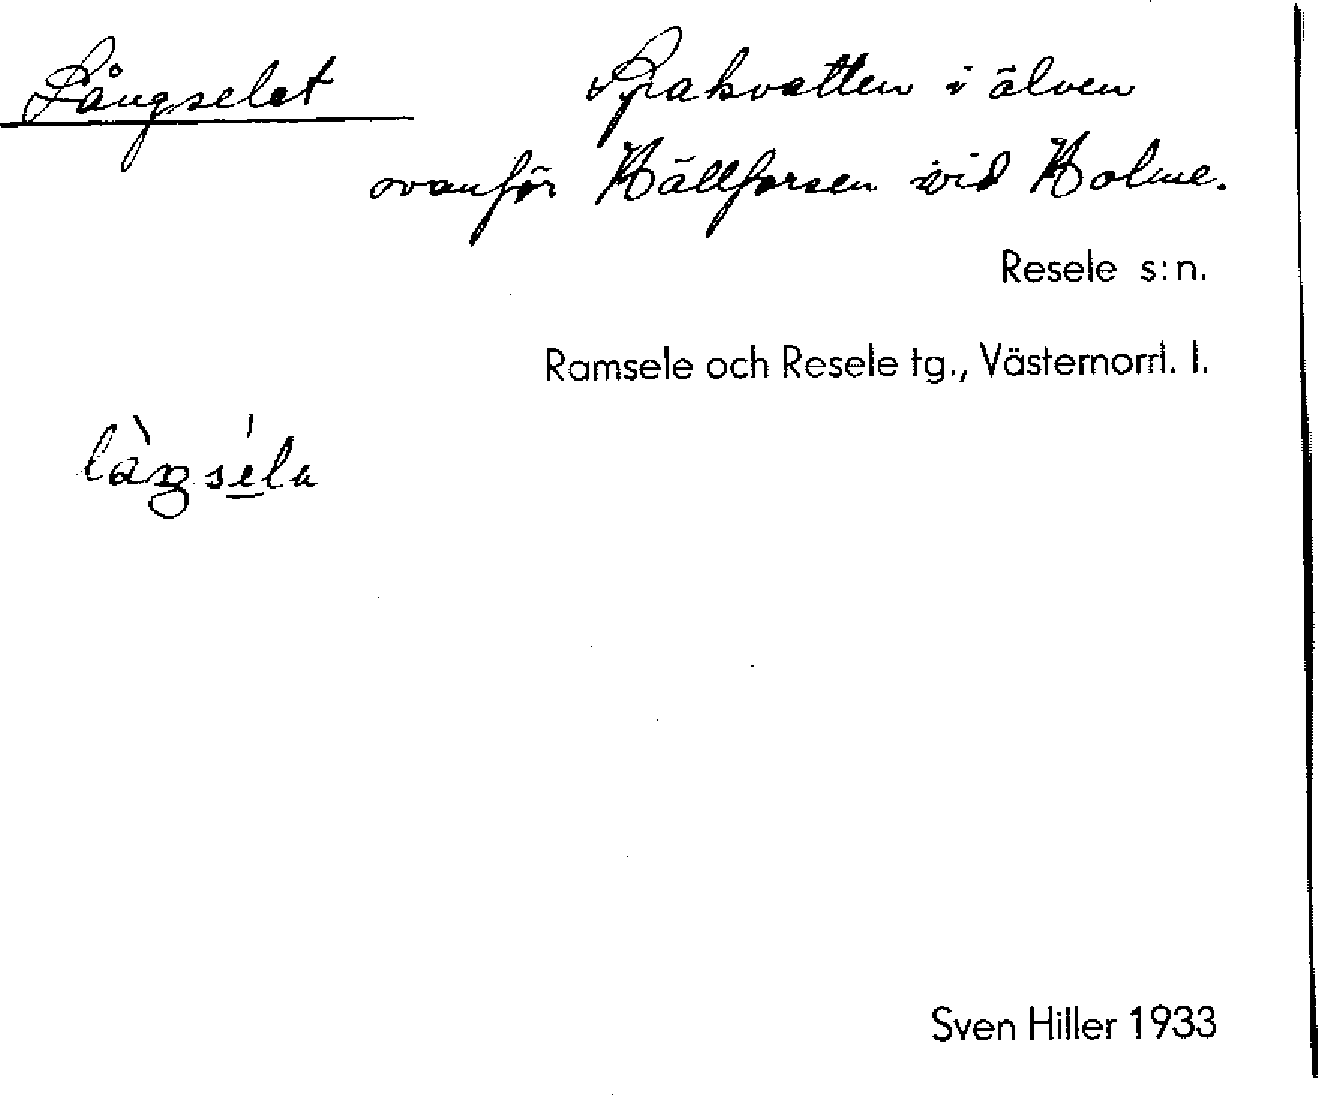 Långselet Spakvatten i älven
ovanför Källforsen vid Holme.
Resele s:n.
Ramsele och Resele tg., Västernorrl. l.
Sven Hiller 1933